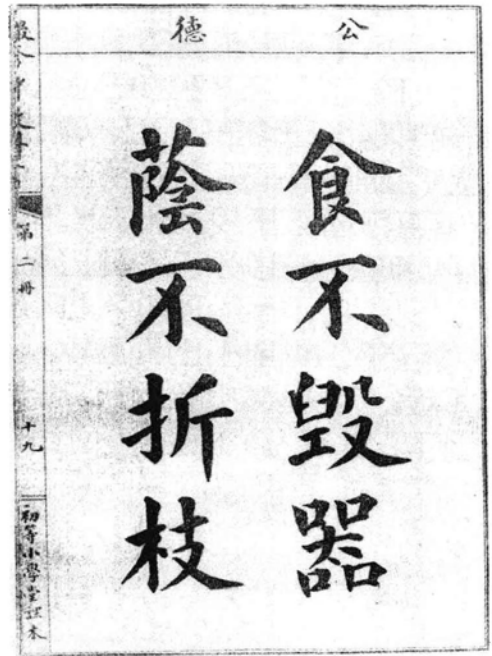 公德
食不毀器
蔭不折枝
第二冊
十九
初等小學堂課本